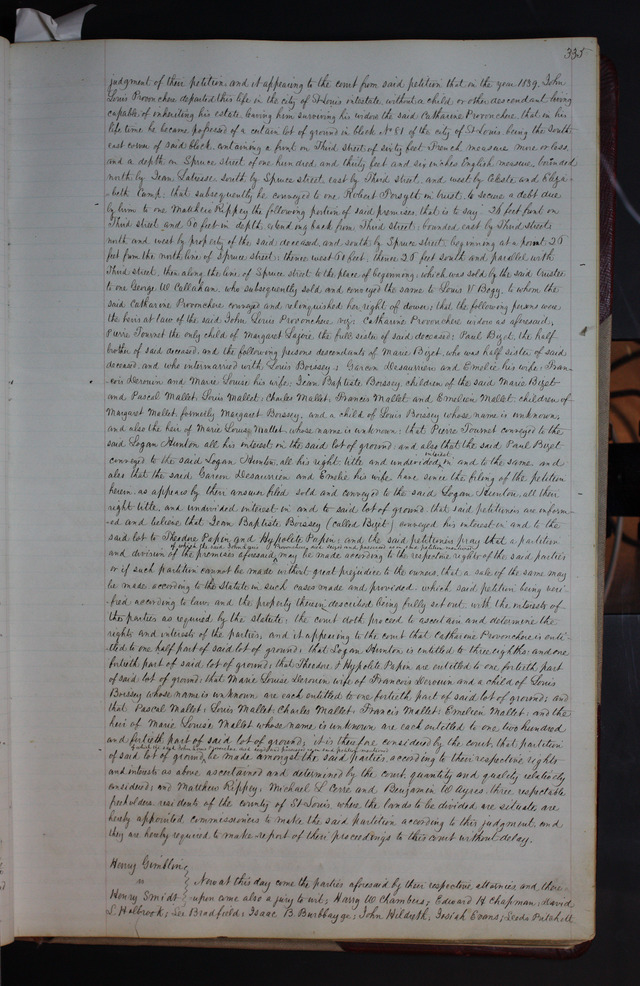 335
judgment of their petition, and it appearing to the court from said petition that in the year 1839. John
Louis Provonchere departed this life in the city of St Louis intestate, without a child or other descendant living
capable of inheriting his estate, leaving him surviving his widow the said Catharine Provonchere, that in his
life time he became possessed of a certain lot of ground in block No 81 of the city of St Louis being the South
east corner of said block, containing a front on Third street of sixty feet French measure more or less,
and a depth on Spruce street of one hundred and thirty feet and six inches English measure, bounded
north by Jean Labisse, south by Spruce street, east by Third street, and west by Celeste and Eliza-
beth Camp: that subsequently he conveyed to one Robert Forsyth in trust, to secure a debt due
by him to one Matthew Rippey the following portion of said premises, that is to say. 26 feet front on
Third street, and 60 feet in depth, extending back from Third street, bounded east by Third street,
north and west by property of the said deceased, and south by Spruce street, beginning at a point 26
feet from the north line of Spruce street: thence west 60 feet: thence 26 feet south and parallel with
Third street, then along the line of Spruce street to the place of beginning; which was sold by the said trustee
to one George W Callahan, who subsequently sold and conveyed the same to Louis V Bogy, to whom the
said Catharine Provonchere conveyed and relinquished her right of dower; that the following persons were
the heirs at law of the said John Louis Provonchere viz: Catharine Provonchere widow as aforesaid;
Pierre Tournot the only child of Margaret Lajoie, the full sister of said deceased; Paul Bizet, the half
brother of said deceased, and the following persons descendants of Marie Bizet, who was half sister of said
deceased, and who intermarried with Louis Boissey; Garcon Desaurrien and Emelie his wife; Fran-
cois Derouin and Marie Louise his wife; Jean Baptiste Boissey, children of the said Marie Bizet
and Pascal Mallet, Louis Mallet; Charles Mallet; Francis Mallet and Emelien Mallet; children of
Margaret Mallet, formerly Margaret Boissey, and a child of Louis Boissey whose name is unknown,
and also the heir of Marie Louise Mallet, whose name is unknown; that Pierre Tournot conveyed to the
said Logan Hunton all his interest in the said lot of ground: and also that the said Paul Bizet
conveyed to the said Logan Hunton, all his right, title and undivided interest in and to the same and
also that the said Garcon Desaurrien and Emelie his wife have since the filing of the petition
herein, as appears by their answer filed sold and conveyed to the said Logan Hunton, all their
right title, and undivided interest in and to said lot of ground, that said petitioners are inform-
ed and believe that Jean Baptiste Boissey (called Bizet) conveyed his interest in and to the
said lot to Theodore Papin and Hypolite Papin; and the said petitioners pray that a partition
of which the said John Louis Provonchere died seized and possessed as in the petition mentioned
and division of the premises aforesaid, may be made according to the respective rights of the said parties
or if such partition cannot be made without great prejudice to the owners, that a sale of the same may
be made according to the statute in such cases made and provided. which said petition being veri-
fied according to law, and the property therein described being fully set out, with the interests of
the parties as required by the statute: the court doth proceed to ascertain and determine the
rights and interests of the parties, and it appearing to the court that Catharine Provonchere is enti-
tled to one half part of said lot of ground; that Logan Hunton is entitled to three eighths and one
fortieth part of said lot of ground; that Theodore & Hypolite Papin are entitled to one fortieth part
of said lot of ground; that Marie Louise Derouin wife of Francois Derouin and a child of Louis
Boissey whose name is unknown are each entitled to one fortieth part of said lot of ground; and
that Pascal Mallet; Louis Mallet; Charles Mallet; Francis Mallet; Emelien Mallet; and the
heir of Marie Louise Mallet whose name is unknown are each entitled to one two hundred
and fortieth part of said lot of ground; it is therefore considered by the court, that partition
of which the said John Louis Provonchere died seized and possessed
of said lot of ground, be made amongst the said parties, according to their respective rights
and interests as above ascertained and determined by the court, quantity and quality relatively
considered; and Matthew Rippey; Michael S Cerre and Benjamin W Ayres, three respectable
freeholders residents of the county of St Louis, where the lands to be divided are situate, are
hereby appointed commissioners to make the said partition according to this judgment, and
they are hereby required to make report of their proceedings to this court without delay.
Henry Gimblin
vs
Now at this day come the parties aforesaid by their respective attornies and there-
Henry Smidt
upon come also a jury to wit; Harry W Chambers; Edward H Chapman; David
L Holbrook; Lee Bradfield; Isaac B Burbbayge; John Hildreth, Josiah Evans;